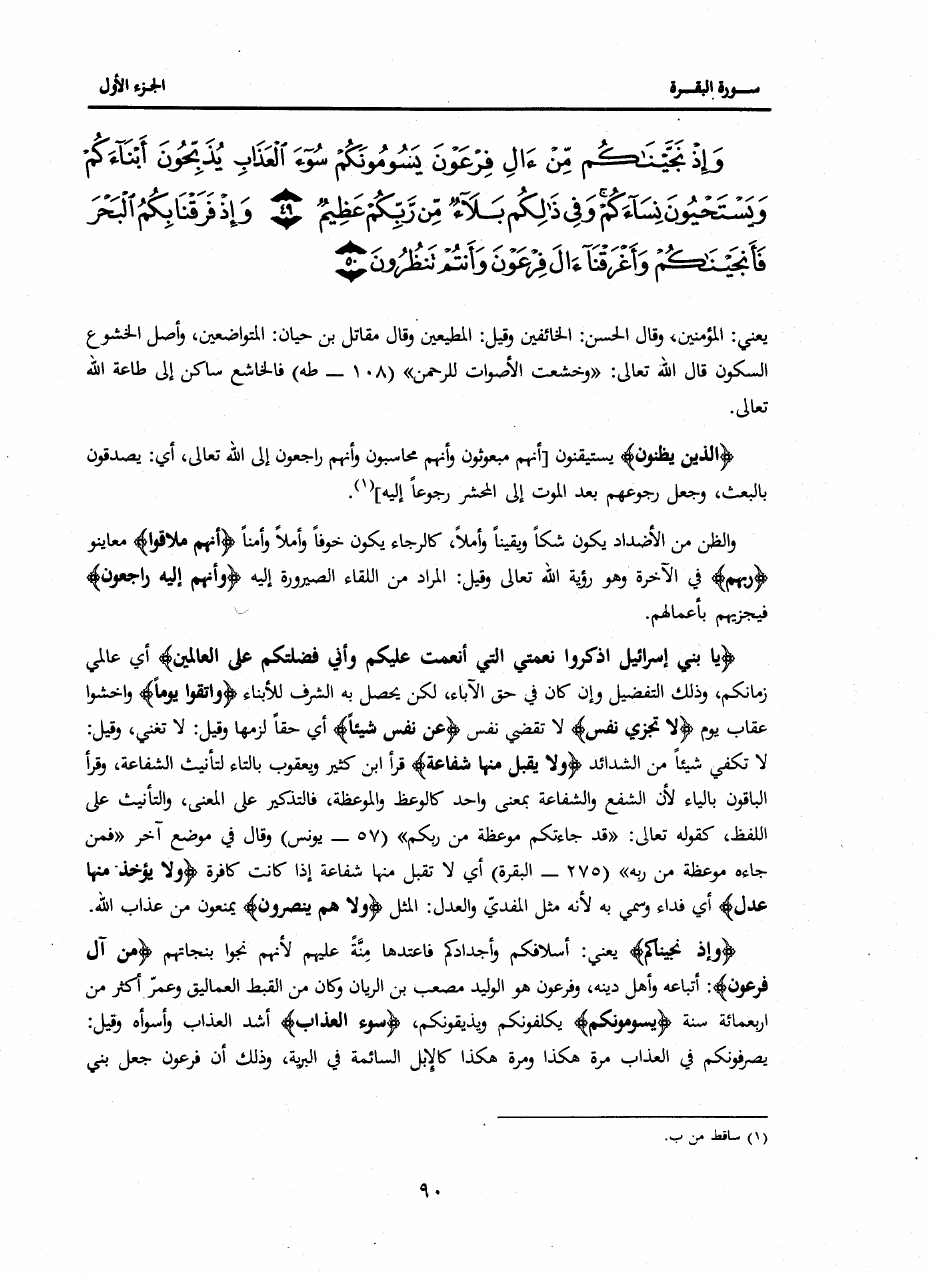 سورة البقرة
الجزء الأول
وَإِذْ نَجَّيْنَاكُم مِّنْ ءَالِ فِرْعَوْنَ يَسُومُونَكُمْ سُوٓءَ الْعَذَابِ يُذَبِّحُونَ أَبْنَآءَكُمْ
وَيَسْتَحْيُونَ نِسَآءَكُمْ ۚ وَفِي ذَٰلِكُم بَلَآءٌ مِّن رَّبِّكُمْ عَظِيمٌ ٤٩ وَإِذْ فَرَقْنَا بِكُمُ الْبَحْرَ
فَأَنجَيْنَاكُمْ وَأَغْرَقْنَآ ءَالَ فِرْعَوْنَ وَأَنتُمْ تَنظُرُونَ ٥٠
يعني: المؤمنين، وقال الحسن: الخائفين وقيل: المطيعين وقال مقاتل بن حيان: المتواضعين، وأصل الخشوع
السكون قال الله تعالى: «وخشعت الأصوات للرحمن» (١٠٨ ـ طه) فالخاشع ساكن إلى طاعة الله
تعالى.
﴿الذين يظنون﴾ يستيقنون [أنهم مبعوثون وأنهم محاسبون وأنهم راجعون إلى الله تعالى، أي: يصدقون
بالبعث، وجعل رجوعهم بعد الموت إلى المحشر رجوعاً إليه](١).
والظن من الأضداد يكون شكاً ويقيناً وأملاً، كالرجاء يكون خوفاً وأملاً وأمناً ﴿أنهم ملاقوا﴾ معاينو
﴿ربهم﴾ في الآخرة وهو رؤية الله تعالى وقيل: المراد من اللقاء الصيرورة إليه ﴿وأنهم إليه راجعون﴾
فيجزيهم بأعمالهم.
﴿يا بني إسرائيل اذكروا نعمتي التي أنعمت عليكم وأني فضلتكم على العالمين﴾ أي عالمي
زمانكم، وذلك التفضيل وإن كان في حق الآباء، لكن يحصل به الشرف للأبناء ﴿واتقوا يوماً﴾ واخشوا
عقاب يوم ﴿لا تجزي نفس﴾ لا تقضي نفس ﴿عن نفس شيئاً﴾ أي حقاً لزمها وقيل: لا تغني، وقيل:
لا تكفي شيئاً من الشدائد ﴿ولا يقبل منها شفاعة﴾ قرأ ابن كثير ويعقوب بالتاء لتأنيث الشفاعة، وقرأ
الباقون بالياء لأن الشفع والشفاعة بمعنى واحد كالوعظ والموعظة، فالتذكير على المعنى، والتأنيث على
اللفظ، كقوله تعالى: «قد جاءتكم موعظة من ربكم» (٥٧ ـ يونس) وقال في موضع آخر «فمن
جاءه موعظة من ربه» (٢٧٥ ـ البقرة) أي لا تقبل منها شفاعة إذا كانت كافرة ﴿ولا يؤخذ منها
عدل﴾ أي فداء وسمي به لأنه مثل المفديّ والعدل: المثل ﴿ولا هم ينصرون﴾ يمنعون من عذاب الله.
﴿وإذ نجيناكم﴾ يعني: أسلافكم وأجدادكم فاعتدها مِنَّةً عليهم لأنهم نجوا بنجاتهم ﴿من آل
فرعون﴾: أتباعه وأهل دينه، وفرعون هو الوليد مصعب بن الريان وكان من القبط العماليق وعمرّ أكثر من
اربعمائة سنة ﴿يسومونكم﴾ يكلفونكم ويذيقونكم، ﴿سوء العذاب﴾ أشد العذاب وأسوأه وقيل:
يصرفونكم في العذاب مرة هكذا ومرة هكذا كالإبل السائمة في البرية، وذلك أن فرعون جعل بني
(١) ساقط من ب.
٩٠